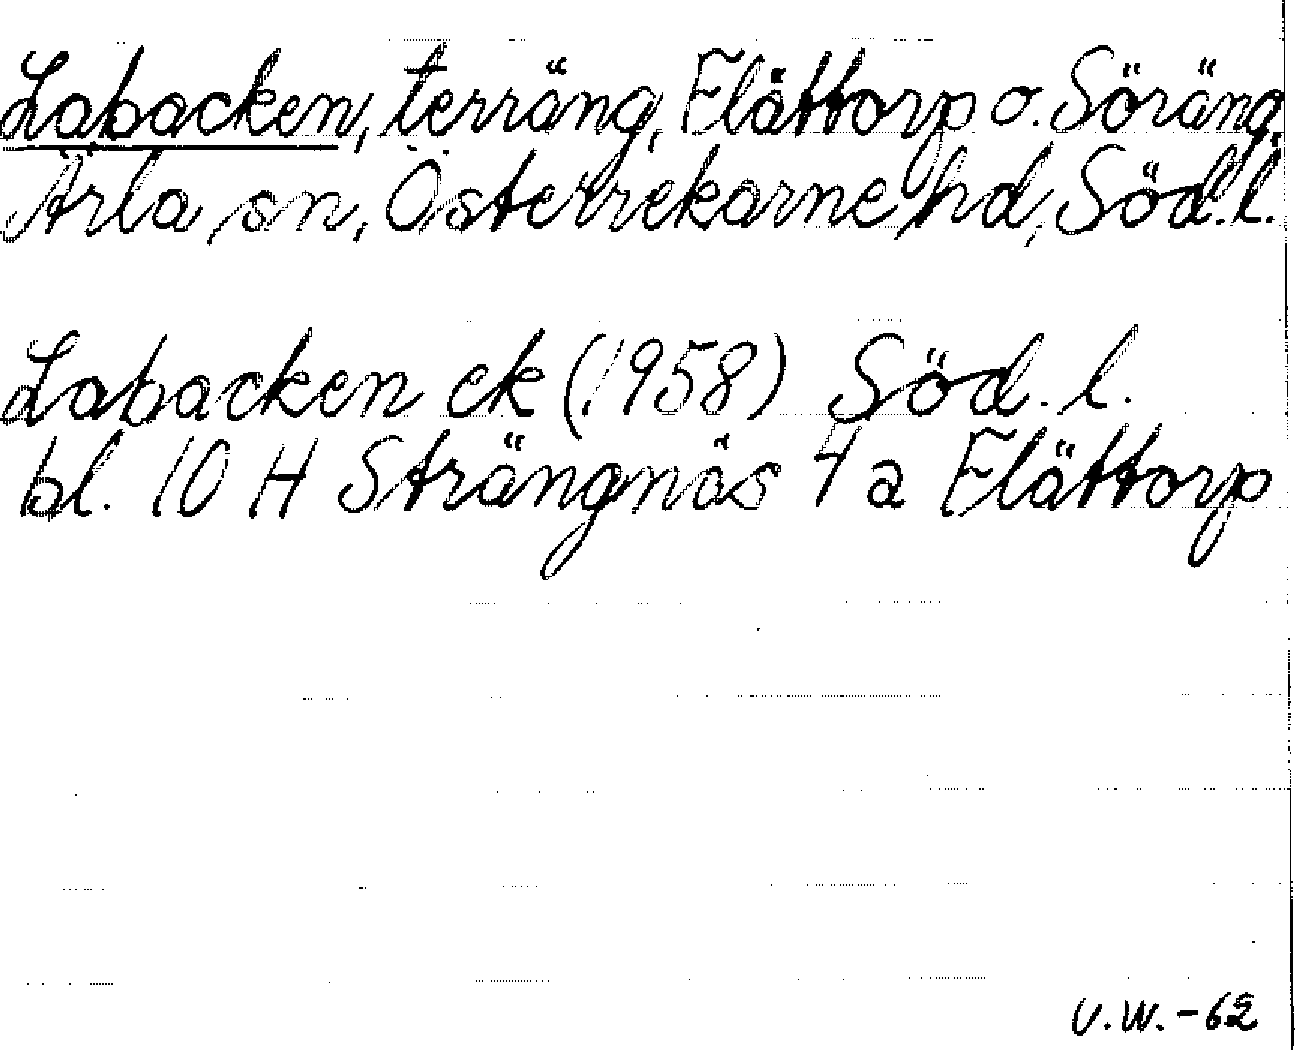 Labacken, terräng, Flättorp o. Söräng,
Ärla sn, Österrekarne hd, Söd.l.
Labacken ek (1958) Söd. l.
bl. 10 H Strängnäs 4 a Flättorp
U.W. - 62